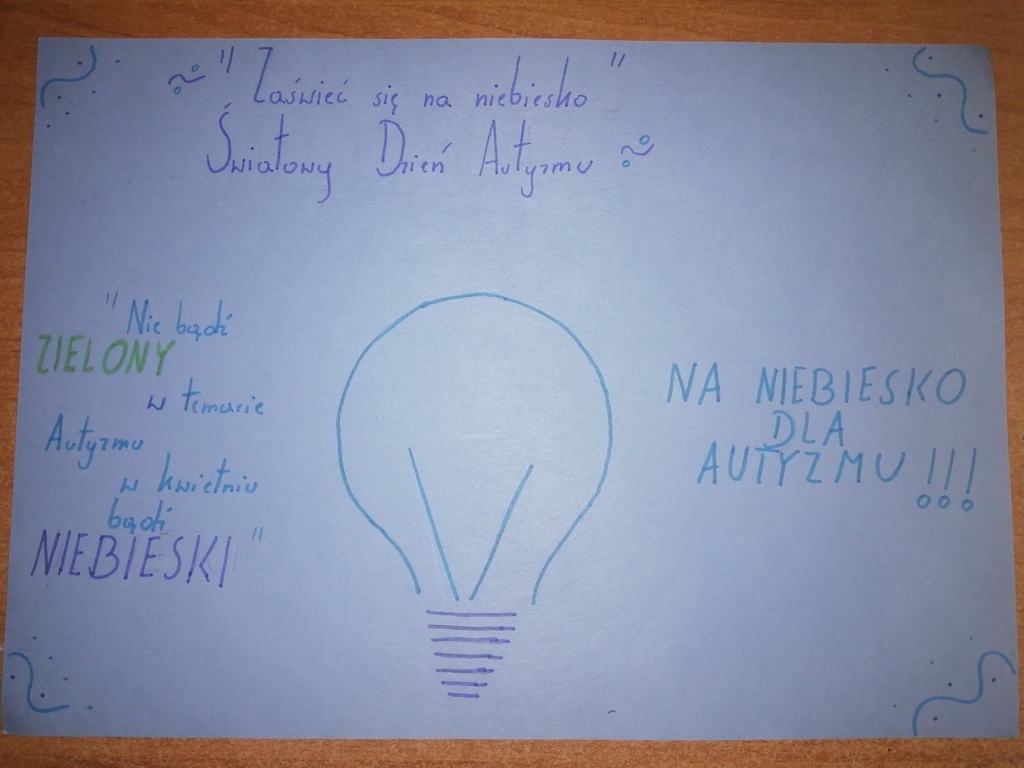 "Zaświeć się na niebiesko"
Światowy Dzień Autyzmu
"Nie bądź
ZIELONY
w temacie
Autyzmu
w kwietniu
bądź
NIEBIESKI"
NA NIEBIESKO
DLA
AUTYZMU !!!